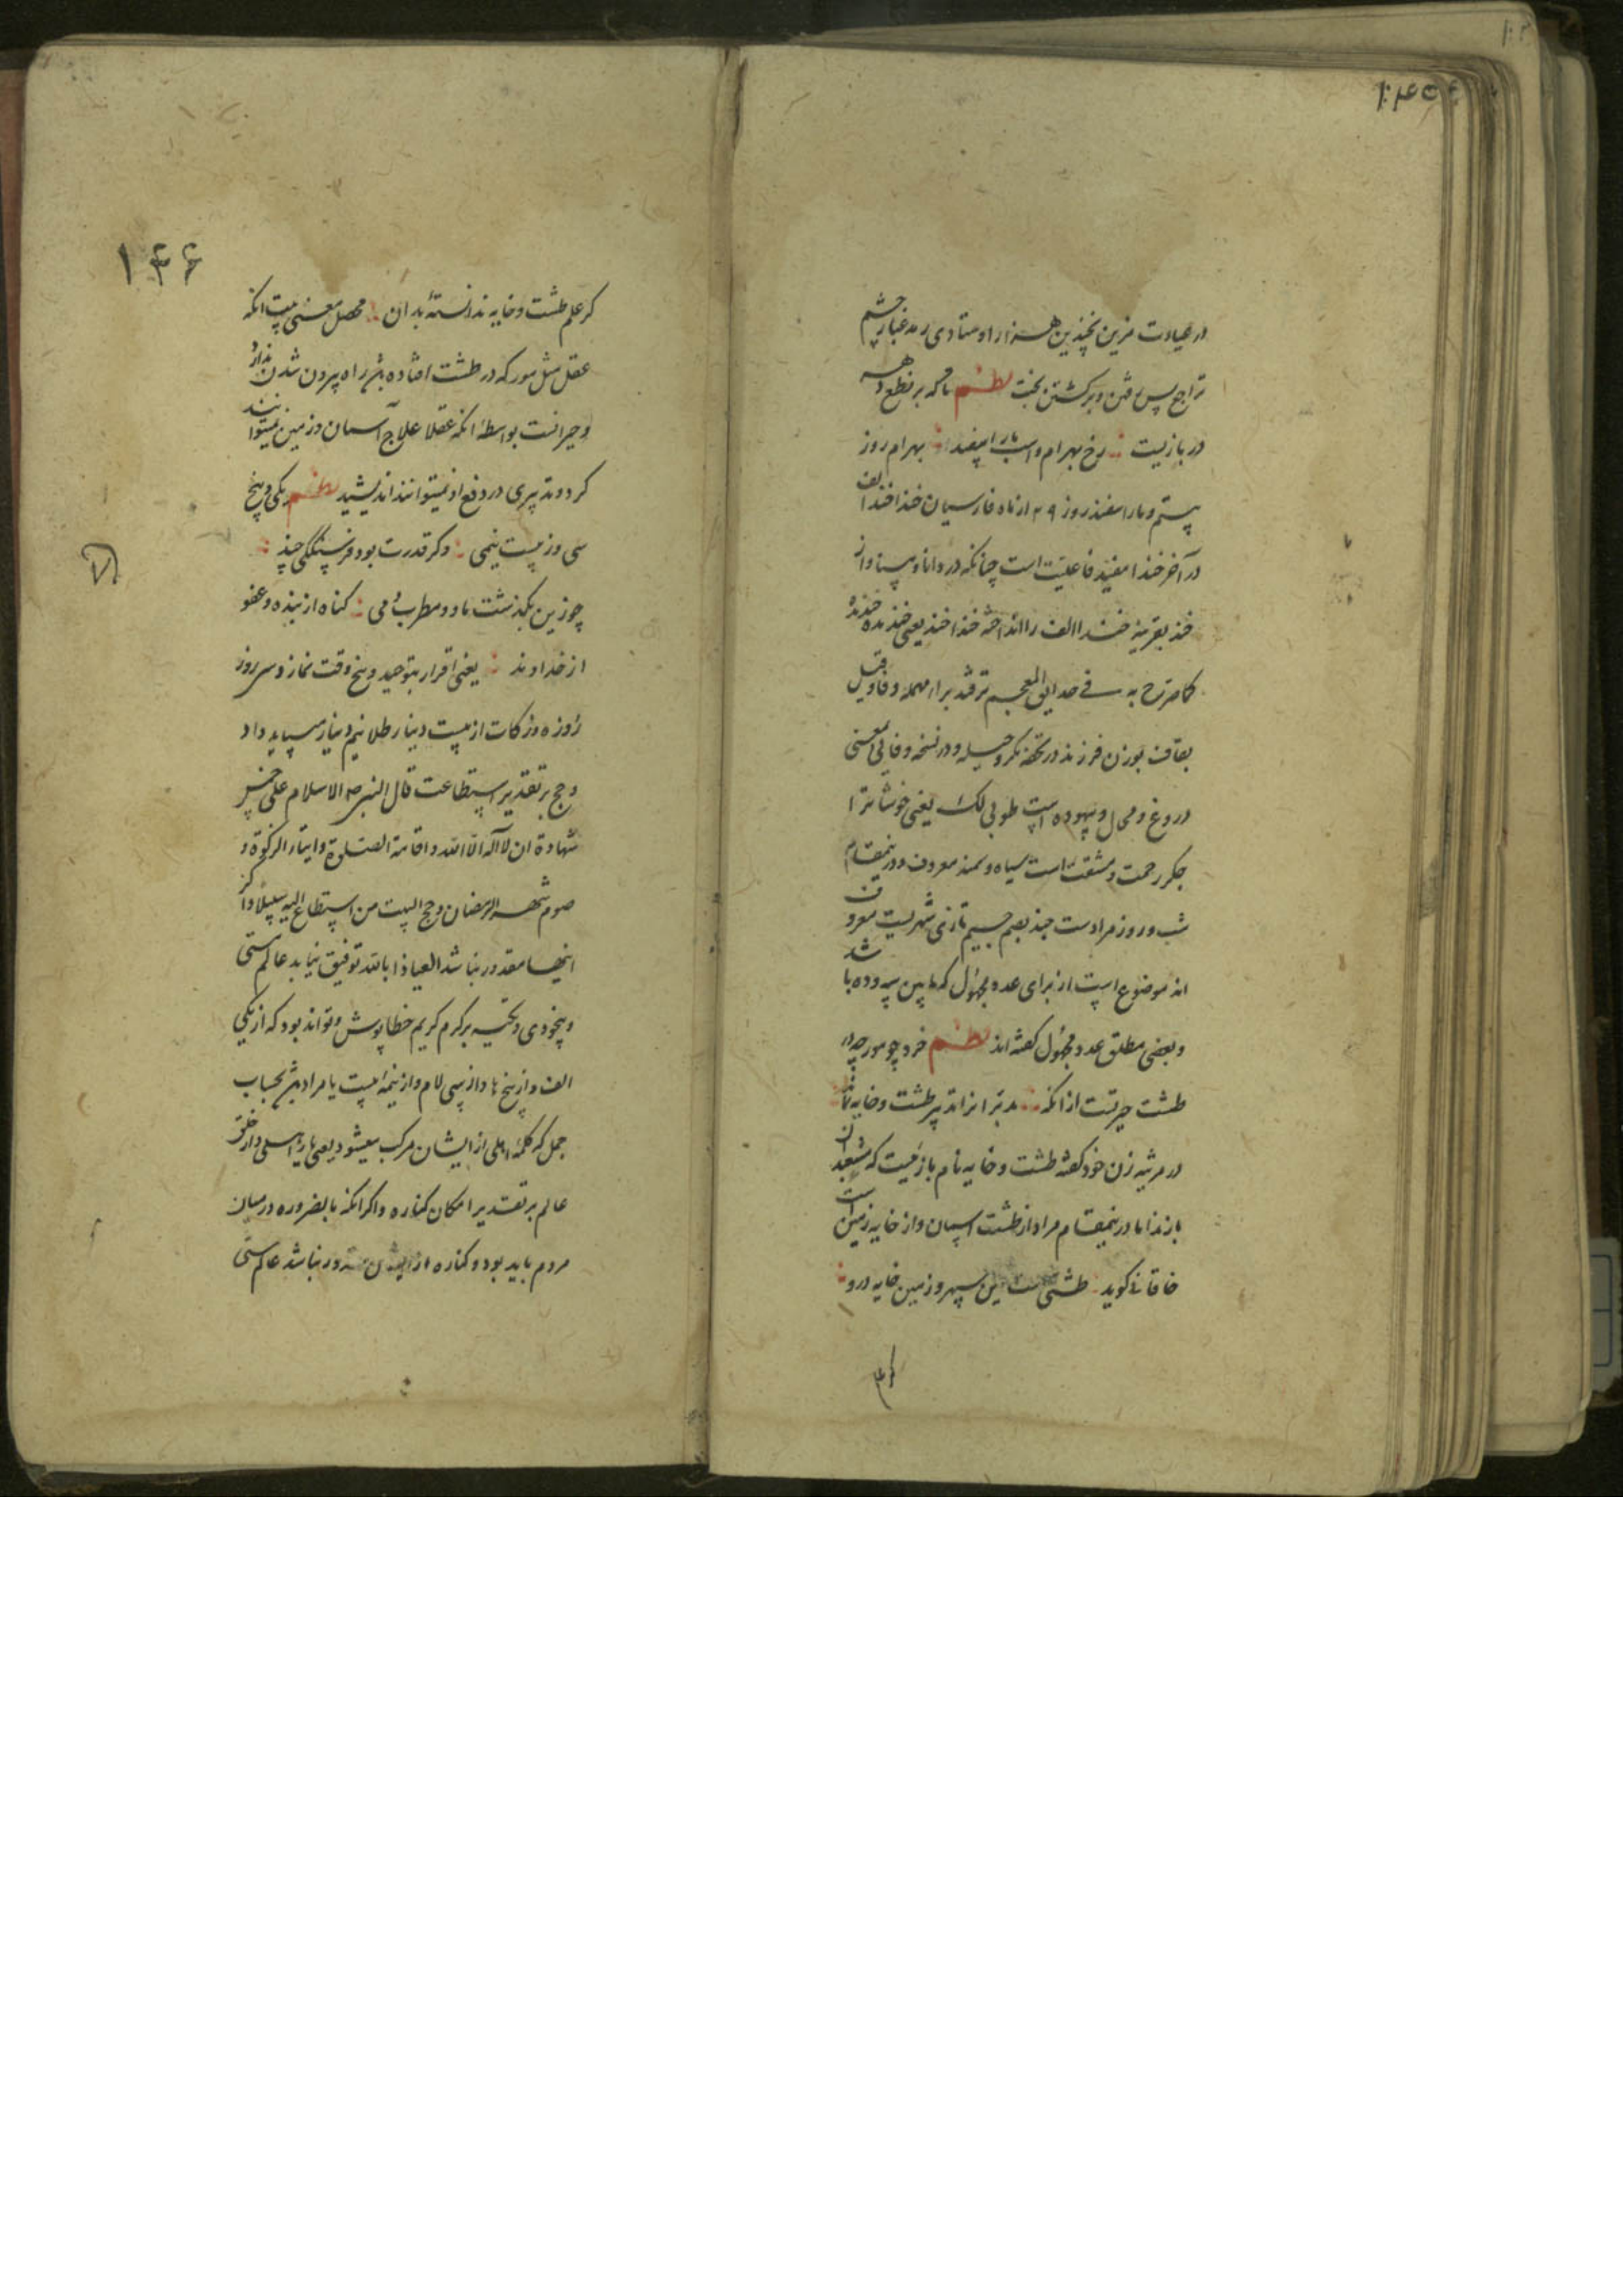 در عیادت مزین بچندین هزار اوستادی رمد غبار چشم
تراجع پس رفتن و برگشتن بخت نظم تا که بر نطع دهر
در بازیست رخ بهرام و اسب بار اسپفند بهرام روز
بیستم و مار اسفند روز ۲۹ از ماه فارسیان خندا خند الف
در آخر خندا مفید فاعلیت است چنانکه در دانا و بینا و از
خند بقرینه خندا الف را انداخته خندا خند یعنی خنده خنده
کما صرح به فی حدایق المعجم ترفند براء مهمله و فا و قیل
بقاف بوزن فرزند در تحفه مکر و حیله و در نسخه وفائی بمعنی
دروغ و محال و بیهوده است طوبی لک یعنی خوشا ترا
جگر زحمت و مشقت است سیاه و سمند معروف و درینمقام
شب و روز مراد است جند بضم جیم تازی شهریست معروف
اند موضوع است از برای عدد مجهول که ما بین سه و ده باشد
و بعضی مطلق عدد مجهول گفته اند نظم خرد چو مورچه در
طشت حیرتست از آنکه بدتر از تدبیر طشت و خایه
در مرثیه زن خود گفته طشت و خایه نام بازیست که مشعبدان
بازند اما درینمقام مراد از طشت آسمان و از خایه زمین است
خاقانی گوید طشتی است این سپهر و زمین خایه درو
کر علم
۱۴۶
کر علم طشت و خایه ندانستهٔ بدان محصل معنی بیت آنکه
عقل مثل مور که در طشت افتاده راه بیرون شدن ندارد
و حیرانست بواسطهٔ آنکه عقلا علاج آسمان و زمین نمیتوانند
کرد و تدبیری در دفع او نمیتوانند اندیشید نظم یکی و پنج
سی وز بیست نیمی دگر قدرت بود فرسنگکی چند
چو زین بگذشت ما و مطرب و می گناه از بنده و عفو
از خداوند یعنی اقرار بتوحید و پنج وقت نماز و سی روز
روزه و زکات از بیست دینار طلا نیم دینار میباید داد
و حج بر تقدیر استطاعت قال النبی ص الاسلام علی خمس
شهادة ان لا اله الا الله و اقامة الصلوة و ایتاء الزکوة و
صوم شهر رمضان و حج البیت من استطاع الیه سبیلا و اگر
اینها مقدور نباشد العیاذا بالله توفیق نیابد عالم مستی
و بیخودی و تکیه بر کرم کریم خطاپوش و تواند بود که از یکی
الف و از پنج ها و از سی لام و از نیمه بیست یا مراد بحساب
جمل که کلمهٔ اهلی از ایشان مرکب میشود یعنی یا اهلی و از خلق
عالم بر تقدیر امکان کناره و اگر آنکه بالضروره در میان
مردم باید بود و کناره از ایشان مقدور نباشد عالم مستی